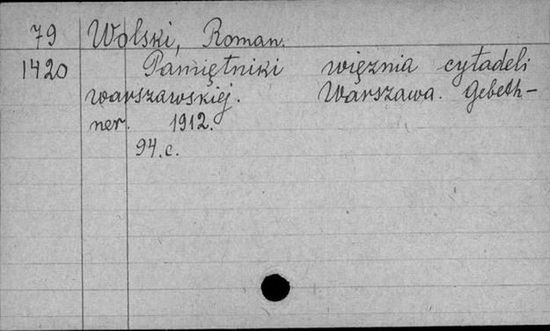 79 Wolski, Roman.
1420 Pamiętniki więznia cytadeli
warszawskiej. Warszawa. Gebeth-
ner. 1912.
94.c.